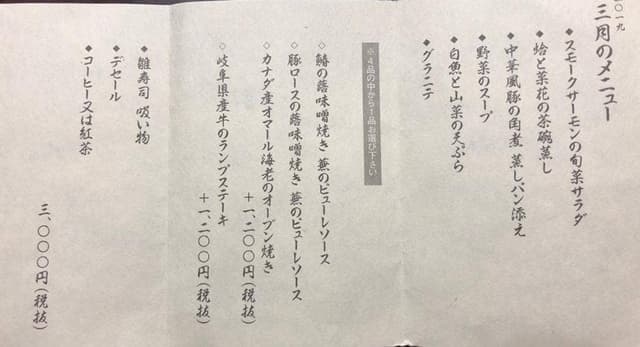 二〇一九
三月のメニュー
◆スモークサーモンの旬菜サラダ
◆蛤と菜花の茶碗蒸し
◆中華風豚の角煮 蒸しパン添え
◆野菜のスープ
◆白魚と山菜の天ぷら
◆グラニテ
※4品の中から1品お選び下さい
◇鰆の蕗味噌焼き 蕪のピューレソース
◇豚ロースの蕗味噌焼き 蕪のピューレソース
◇カナダ産オマール海老のオーブン焼き
+一、二〇〇円(税抜)
◇岐阜県産牛のランプステーキ
+一、二〇〇円(税抜)
◆雛寿司 吸い物
◆デセール
◆コーヒー又は紅茶
三、〇〇〇円(税抜)